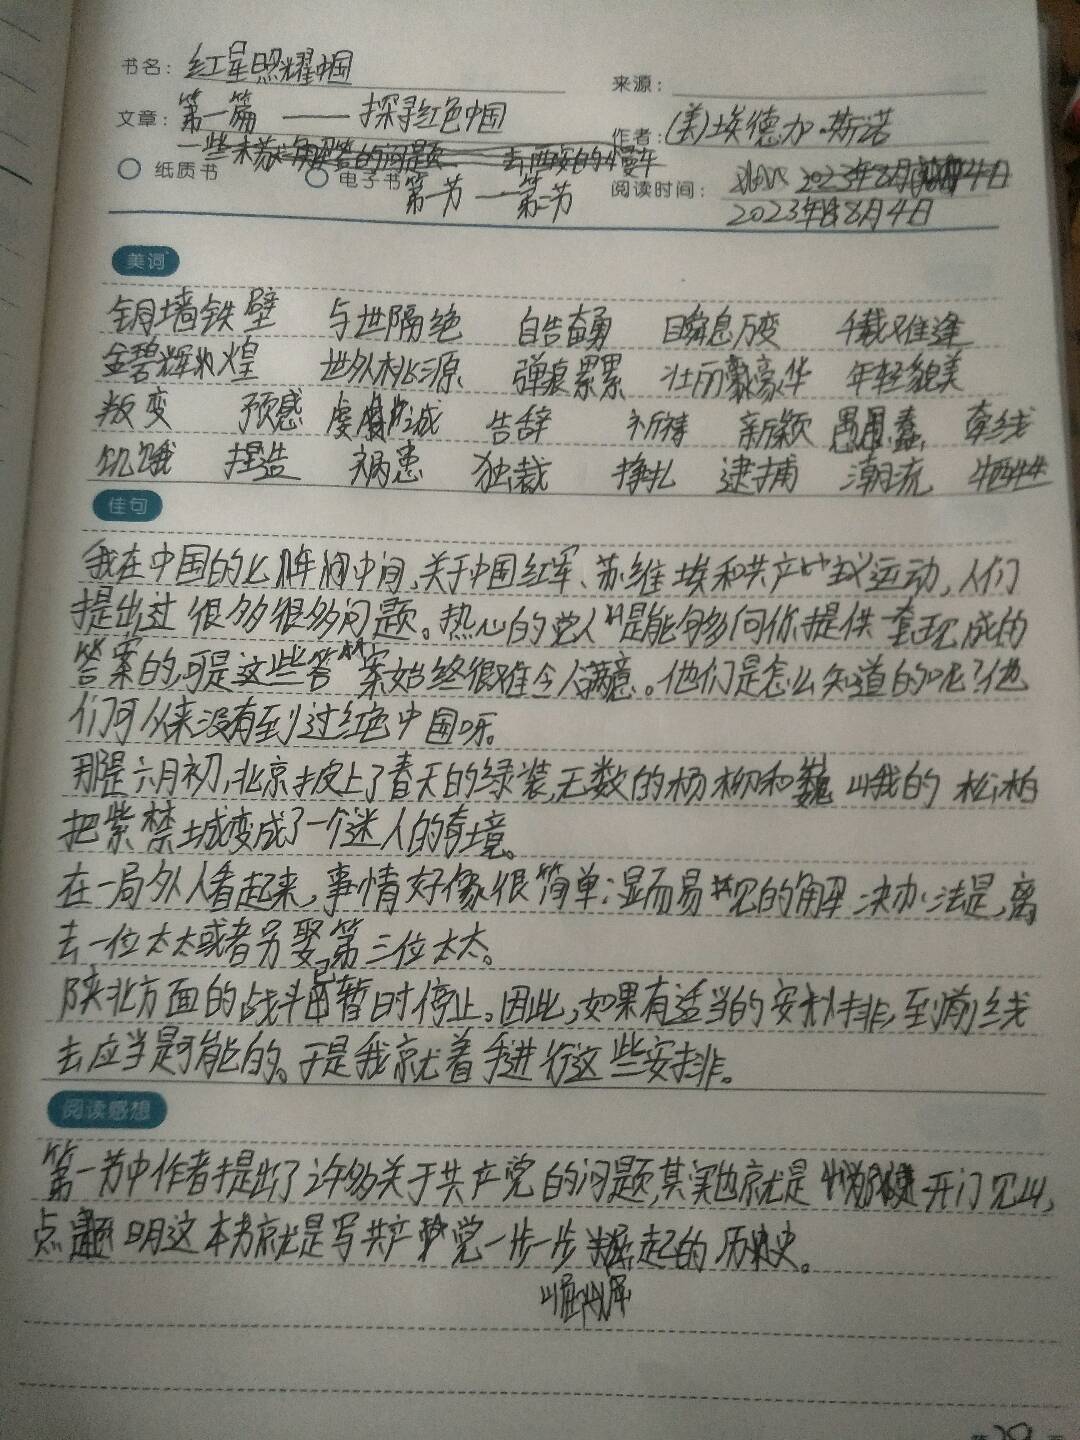 书名：红星照耀中国
来源：
文章：第一篇 —— 探寻红色中国
作者：(美)埃德加·斯诺
纸质书 电子书
第一节 — 第二节
阅读时间：
2023年8月4日
美词
铜墙铁壁 与世隔绝 自告奋勇 瞬息万变 千载难逢
金碧辉煌 世外桃源 弹痕累累 壮丽豪华 年轻貌美
叛变 预感 虔诚 告辞 祈祷 新颖 愚蠢 牵线
饥饿 捏造 祸患 独裁 挣扎 逮捕 潮流 牺牲
佳句
我在中国的七年中间，关于中国红军、苏维埃和共产主义运动，人们
提出过很多很多问题。热心的党人是能够向你提供一套现成的
答案的，可是这些答案始终很难令人满意。他们是怎么知道的呢？他
们可从来没有到过红色中国呀。
那是六月初，北京披上了春天的绿装，无数的杨柳和巍峨的松柏
把紫禁城变成了一个迷人的奇境。
在一局外人看起来，事情好像很简单：显而易见的解决办法是，离
去一位太太或者另娶第三位太太。
陕北方面的战斗已暂时停止。因此，如果有适当的安排，到前线
去应当是可能的。于是我就着手进行这些安排。
阅读感想
第一节中作者提出了许多关于共产党的问题，其实也就是开门见山，
点题明这本书就是写共产党一步一步崛起的历史。